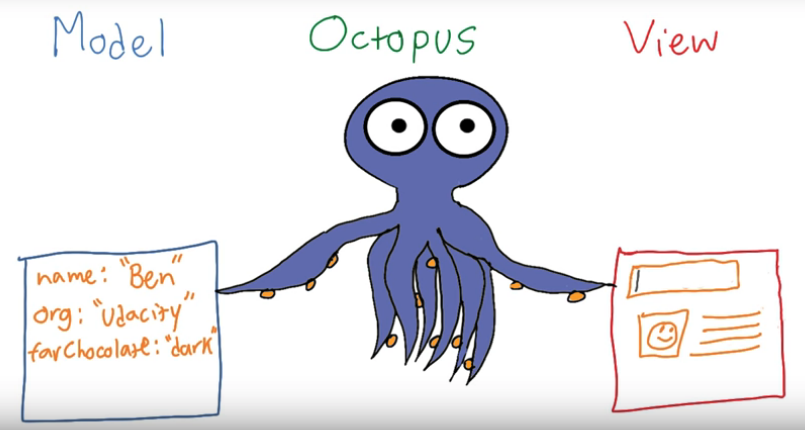 Model
Octopus
View
name: "Ben"
org: "Udacity"
favChocolate: "dark"